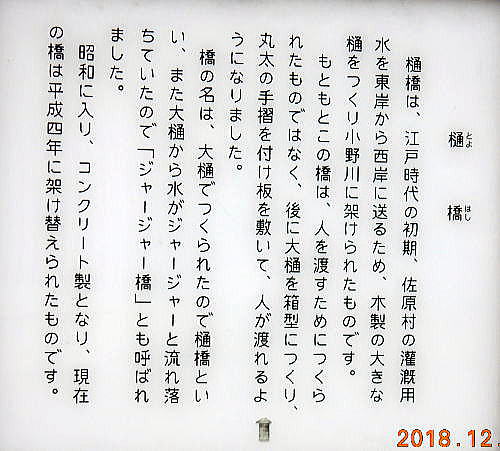 樋橋
とよ はし
樋橋は、江戸時代の初期、佐原村の灌漑用
水を東岸から西岸に送るため、木製の大きな
樋をつくり小野川に架けられたものです。
もともとこの橋は、人を渡すためにつくら
れたものではなく、後に大樋を箱型につくり、
丸太の手摺を付け板を敷いて、人が渡れるよ
うになりました。
橋の名は、大樋でつくられたので樋橋とい
い、また大樋から水がジャージャーと流れ落
ちていたので「ジャージャー橋」とも呼ばれ
ました。
昭和に入り、コンクリート製となり、現在
の橋は平成四年に架け替えられたものです。
2018.12.